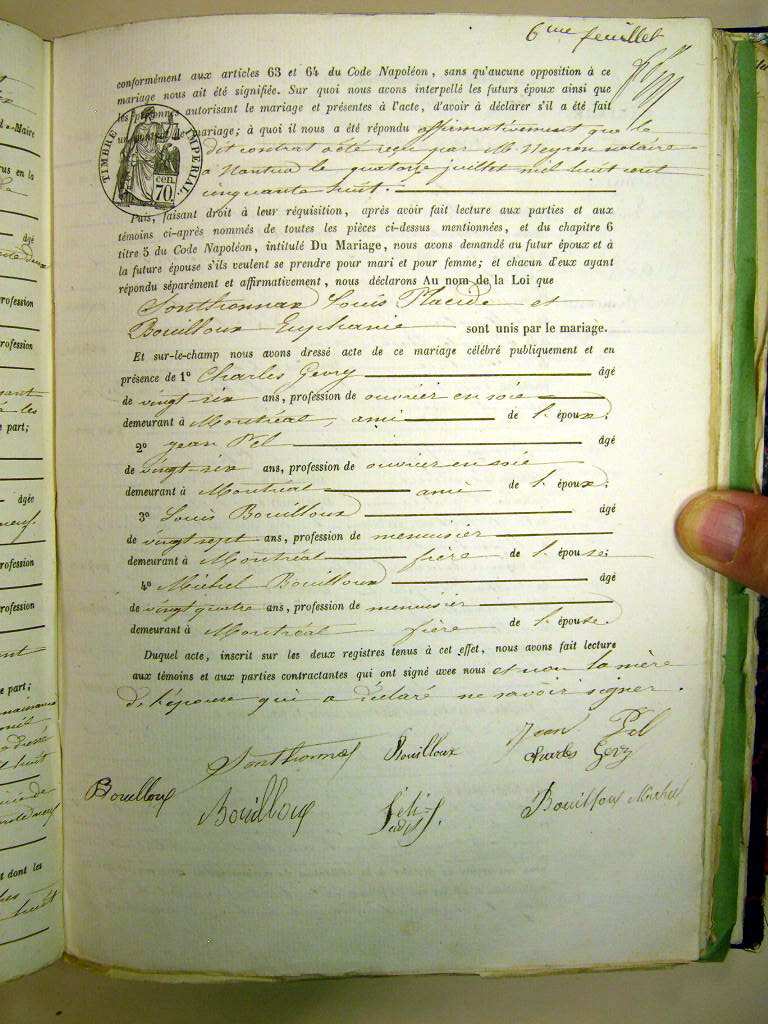 6me feuillet
conformément aux articles 63 et 64 du Code Napoléon, sans qu'aucune opposition à ce
mariage nous ait été signifiée. Sur quoi nous avons interpellé les futurs époux ainsi que
les personnes autorisant le mariage et présentes à l'acte, d'avoir à déclarer s'il a été fait
un contrat de mariage; à quoi il nous a été répondu affirmativement que le
dit contrat a été reçu par Me Neyron notaire
à Nantua le quatorze juillet mil huit cent
cinquante huit.
TIMBRE IMPÉRIAL
70 cen.
Puis, faisant droit à leur réquisition, après avoir fait lecture aux parties et aux
témoins ci-après nommés de toutes les pièces ci-dessus mentionnées, et du chapitre 6
titre 5 du Code Napoléon, intitulé Du Mariage, nous avons demandé au futur époux et à
la future épouse s'ils veulent se prendre pour mari et pour femme; et chacun d'eux ayant
répondu séparément et affirmativement, nous déclarons Au nom de la Loi que
Sonthonnax Louis Placide et
Bouilloux Euphanie sont unis par le mariage.
Et sur-le-champ nous avons dressé acte de ce mariage célébré publiquement et en
présence de 1º Charles Gevry âgé
de vingt six ans, profession de ouvrier en soie
demeurant à Montréal, ami de l'époux;
2º jean Pel âgé
de vingt six ans, profession de ouvrier en soie
demeurant à Montréal ami de l'époux;
3º Louis Bouilloux âgé
de vingt sept ans, profession de menuisier
demeurant à Montréal frère de l'épouse;
4º Michel Bouilloux âgé
de vingt quatre ans, profession de menuisier
demeurant à Montréal frère de l'épouse
Duquel acte, inscrit sur les deux registres tenus à cet effet, nous avons fait lecture
aux témoins et aux parties contractantes qui ont signé avec nous et non la mère
de l'épouse qui a déclaré ne savoir signer.
Sonthonnax Bouilloux Jean Pel
Charles Gevry
Bouilloux Bouilloux Bouilloux Michel